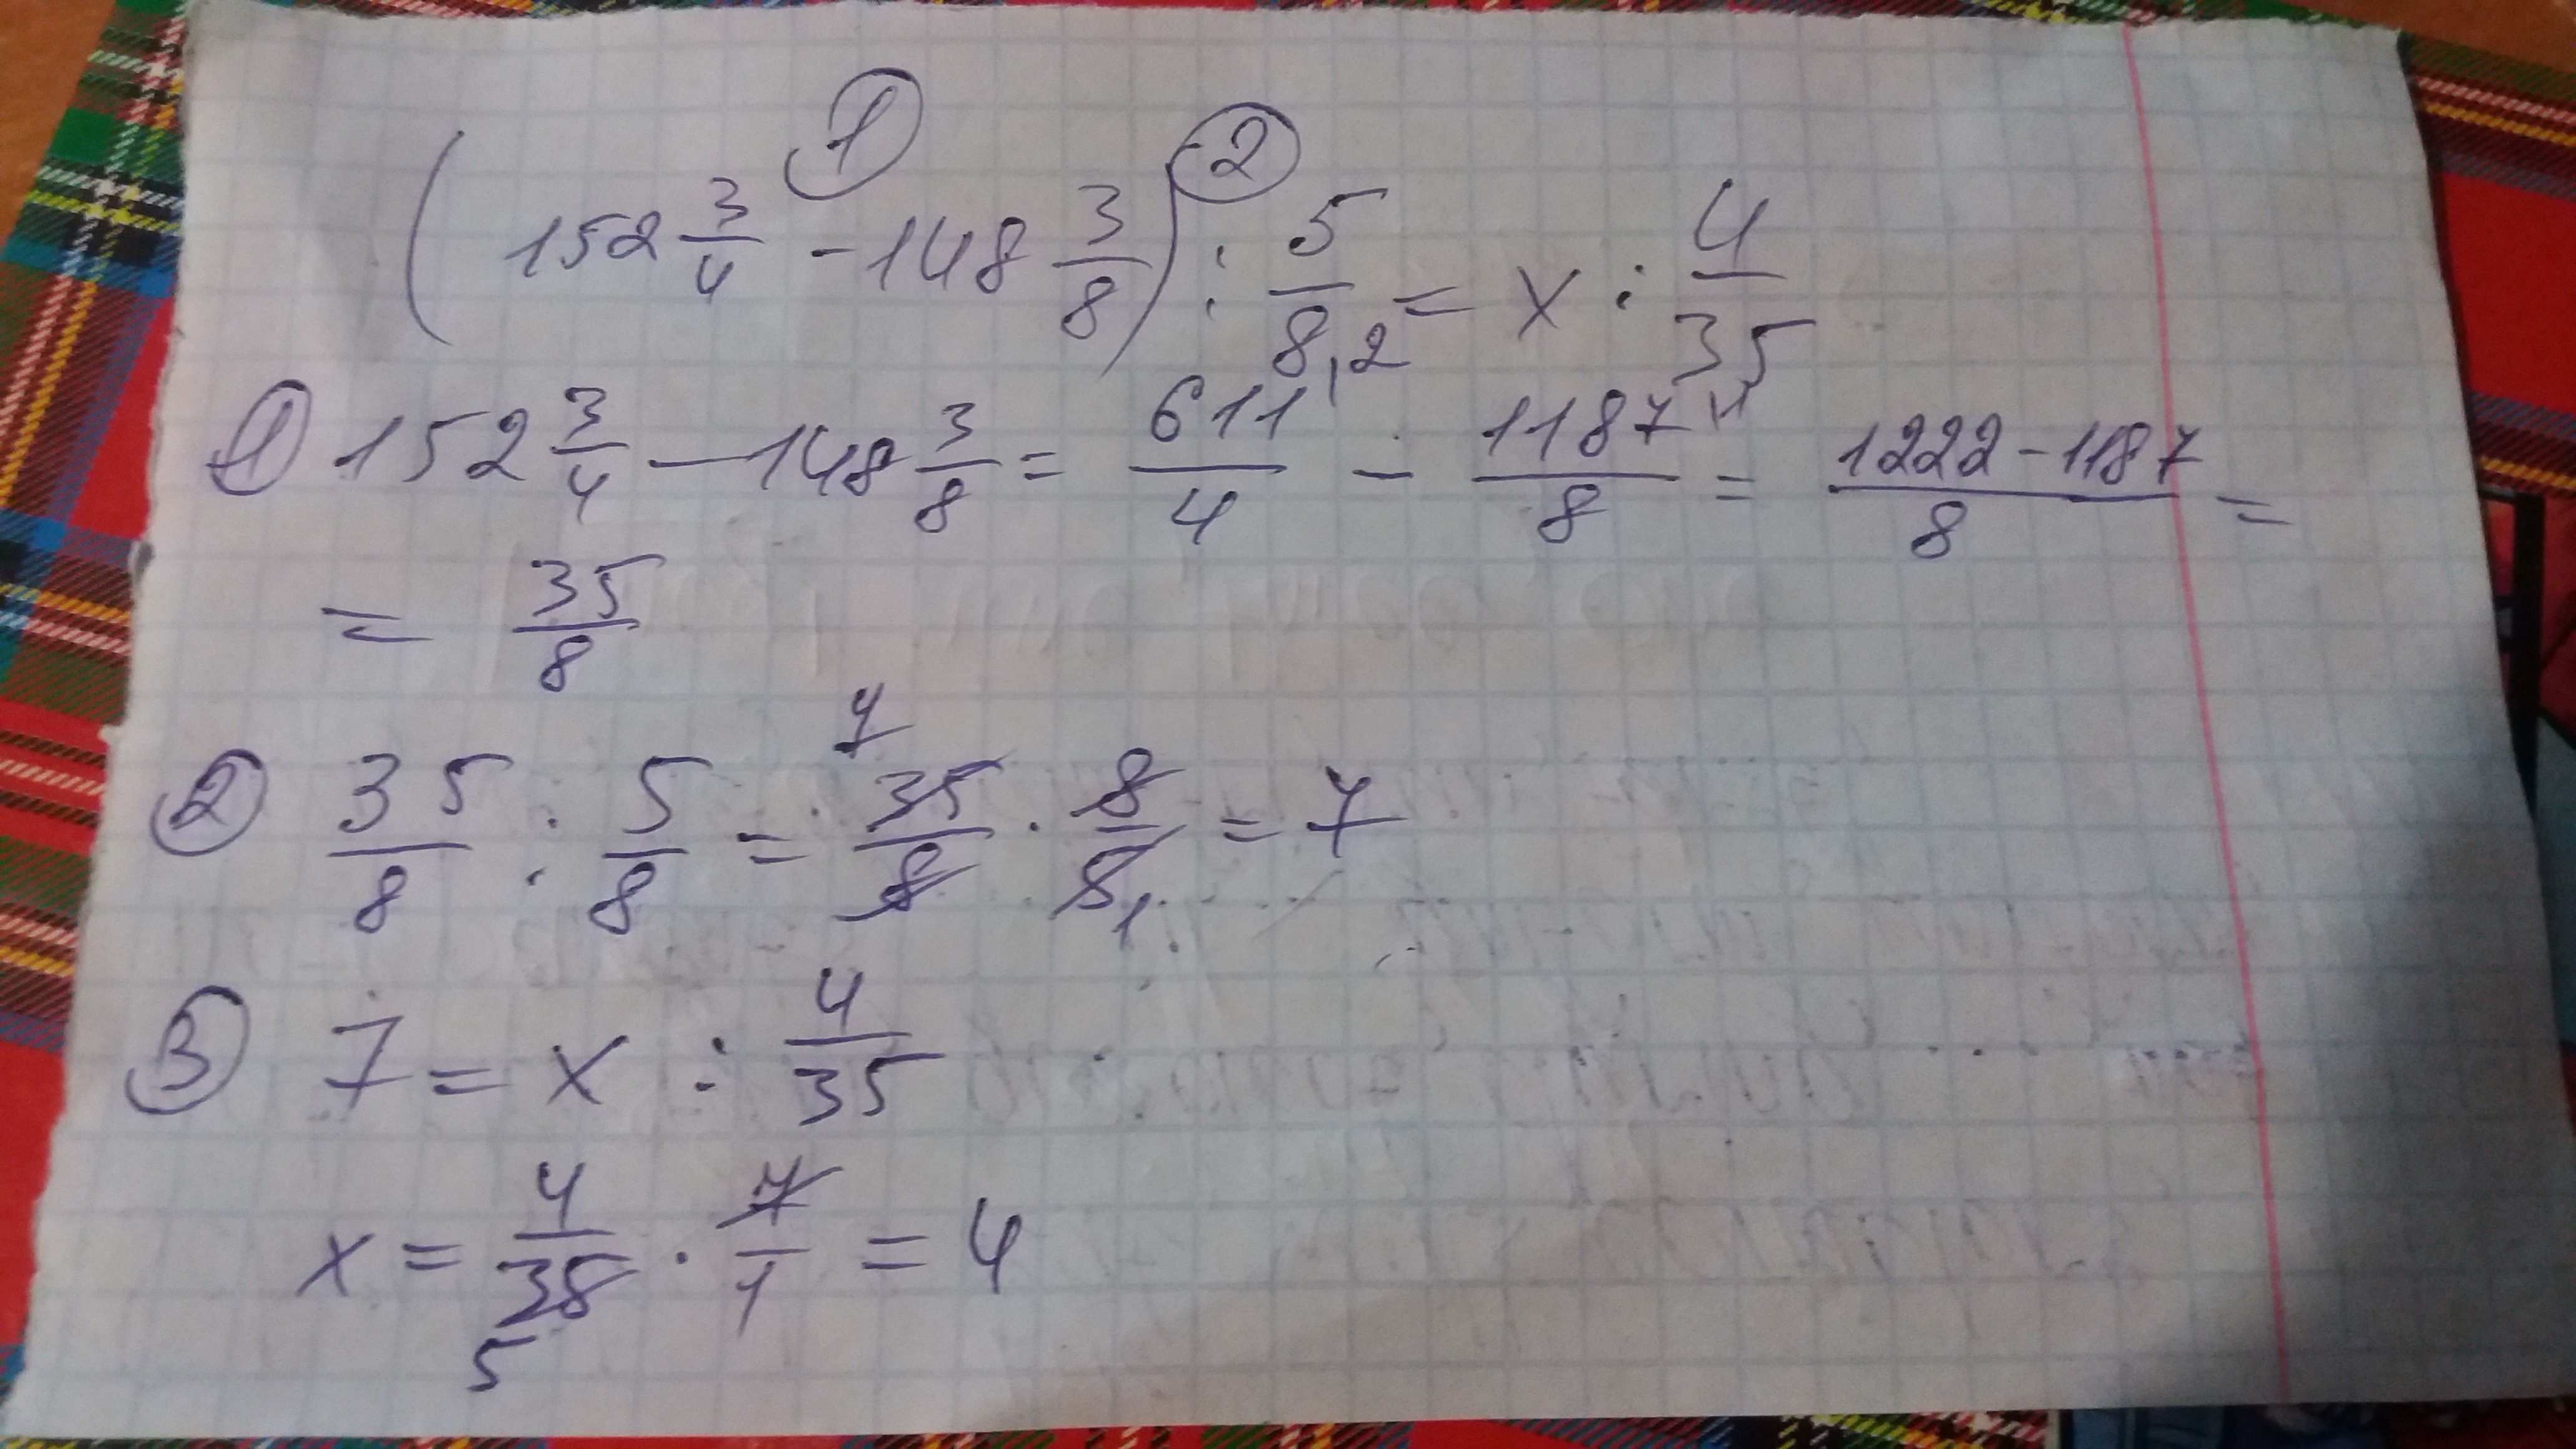 ① ②
(152 3/4 - 148 3/8) : 5/8 = x : 4/35
① 152 3/4 - 148 3/8 = 611/4 - 1187/8 = 1222-1187/8 =
= 35/8
② 35/8 : 5/8 = 35/8 · 8/5 = 7
③ 7 = x : 4/35
x = 4/35 · 7/1 = 4
5